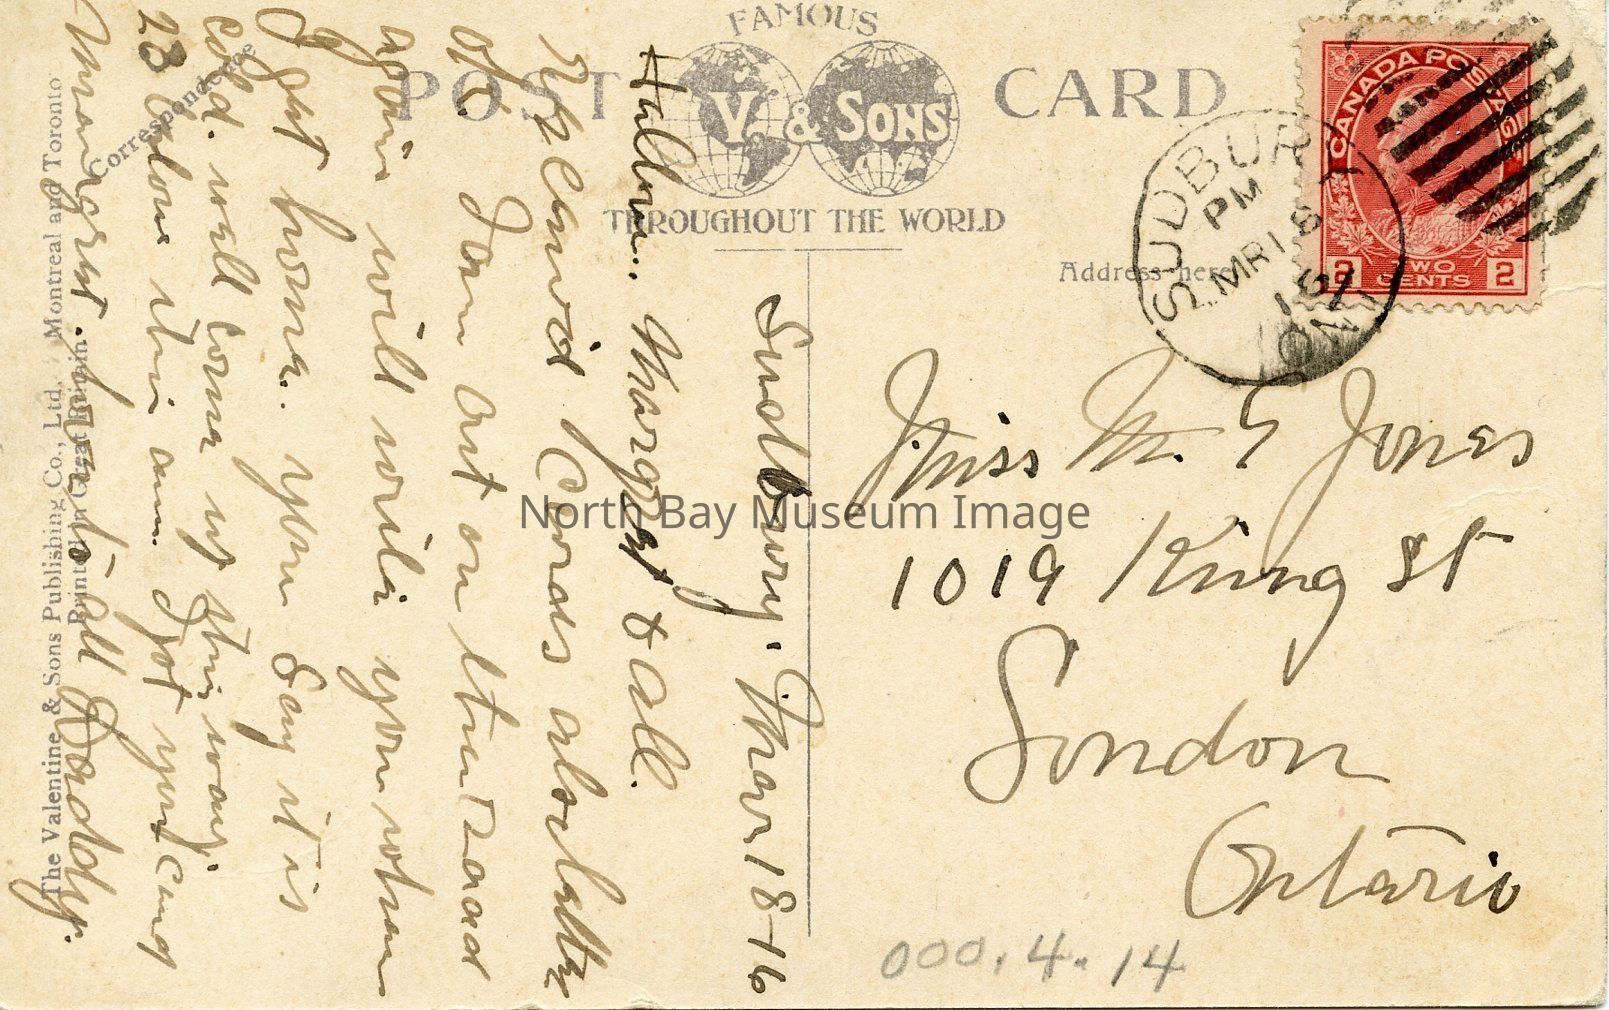 FAMOUS
POST CARD
V. & SONS
THROUGHOUT THE WORLD
Correspondence
Address here
The Valentine & Sons Publishing Co., Ltd., Montreal and Toronto
Printed in Great Britain.
CANADA POSTAGE
2 TWO CENTS 2
SUDBURY
PM
MR 18
16
ONT
Sudbury. Mar 18-16
Hallow. Margret & all.
Received Cards also letter
of. I am out on the road
again will write you when
I get home. you say it is
cold. will come up this way.
23 below this am. I got your card
Margret. love to all Daddy.
Miss M. E Jones
1019 King St
London
Ontario
000.4.14
North Bay Museum Image